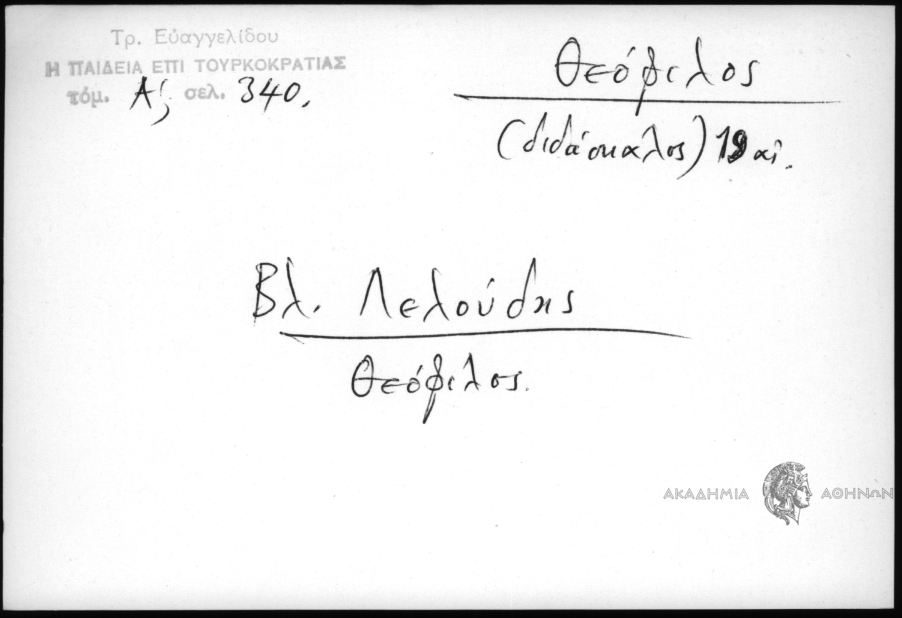 Τρ. Εὐαγγελίδου
Η ΠΑΙΔΕΙΑ ΕΠΙ ΤΟΥΡΚΟΚΡΑΤΙΑΣ
τόμ. Α', σελ. 340.
Θεόφιλος
(διδάσκαλος) 19 αἰ.
Βλ. Λελούδης
Θεόφιλος.
ΑΚΑΔΗΜΙΑ ΑΘΗΝΩΝ